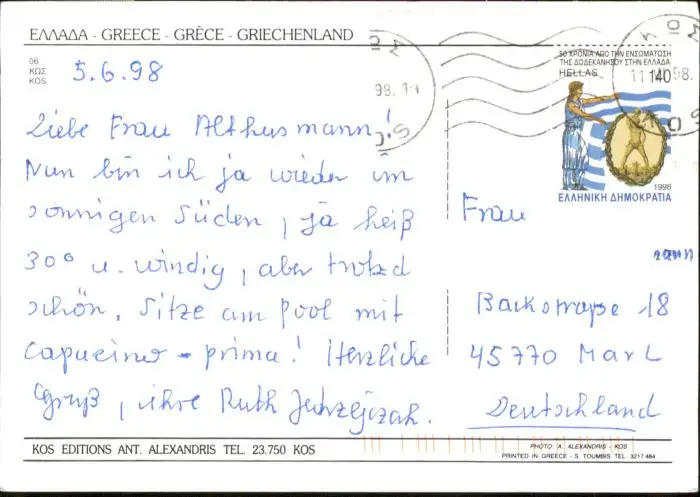 ΕΛΛΑΔΑ - GREECE - GRÈCE - GRIECHENLAND
06
ΚΩΣ
KOS
5.6.98
Liebe Frau Althusmann!
Nun bin ich ja wieder im
sonnigen Süden, ja heiß
30° u. windig, aber trotzd
schön. Sitze am Pool mit
Capucino - prima! Herzliche
Grüß, ihre Ruth
50 ΧΡΟΝΙΑ ΑΠΟ ΤΗΝ ΕΝΣΩΜΑΤΩΣΗ
ΤΗΣ ΔΩΔΕΚΑΝΗΣΟΥ ΣΤΗΝ ΕΛΛΑΔΑ
HELLAS 140
1998
ΕΛΛΗΝΙΚΗ ΔΗΜΟΚΡΑΤΙΑ
ΚΩΣ
98.
Frau
Backstraße 18
45770 Marl
Deutschland
KOS EDITIONS ANT. ALEXANDRIS TEL. 23.750 KOS
PHOTO A. ALEXANDRIS - KOS
PRINTED IN GREECE - S. TOUMBIS TEL. 3217 484